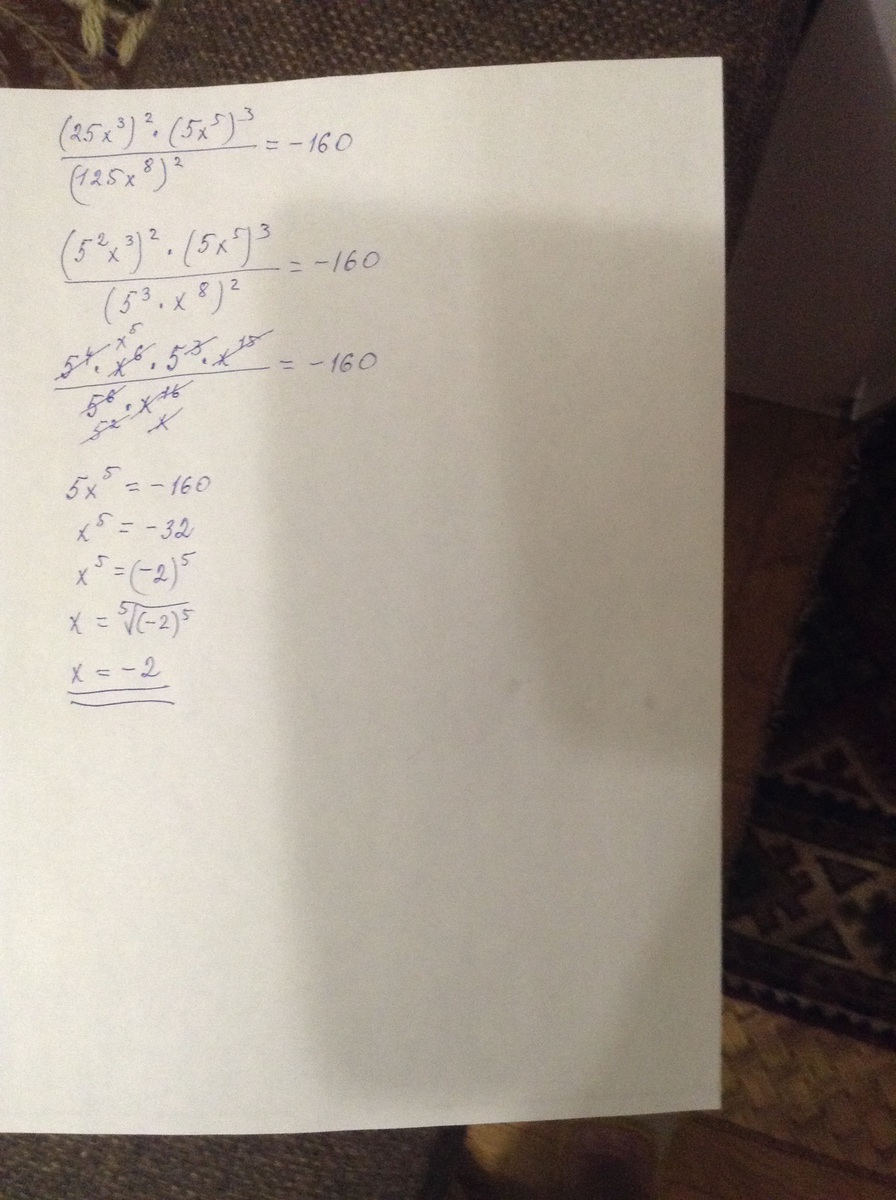 (25x³)² · (5x⁵)³ / (125x⁸)² = -160
(5²x³)² · (5x⁵)³ / (5³ · x⁸)² = -160
x⁵
5⁴ · x⁶ · 5³ · x¹⁵ / 5⁶ · x¹⁶ = -160
5² x
5x⁵ = -160
x⁵ = -32
x⁵ = (-2)⁵
x = ⁵√(-2)⁵
x = -2